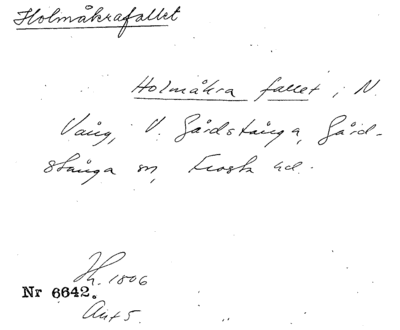 Holmåkrafallet
Holmåkra fallet, i N.
Vång, V. Gårdstånga, Gård-
stånga sn, Frosta hd.
Hy. 1806
Nr 6642.
Akt 5.